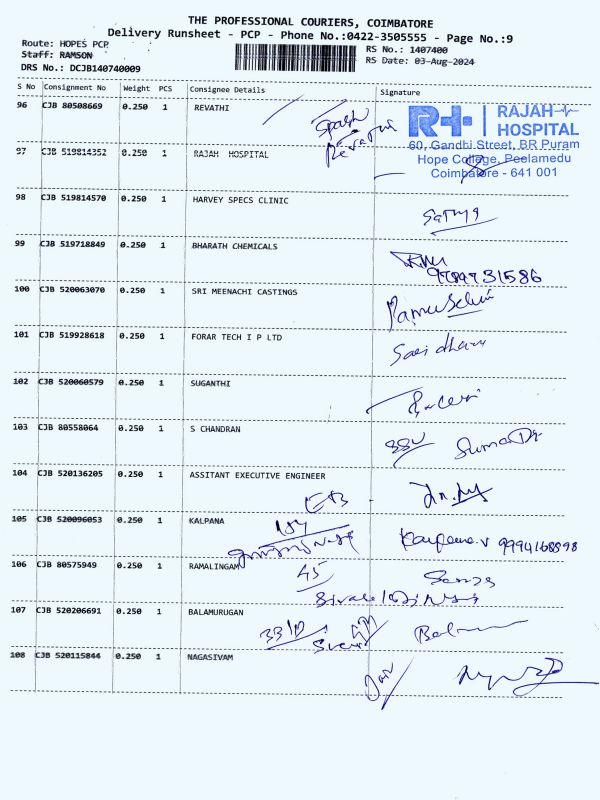 THE PROFESSIONAL COURIERS, COIMBATORE
Delivery Runsheet - PCP - Phone No.:0422-3505555 - Page No.:9
Route: HOPES PCP
RS No.: 1407400
Staff: RAMSON
RS Date: 03-Aug-2024
DRS No.: DCJB140740009
S No Consignment No Weight PCS Consignee Details Signature
96 CJB 80508669 0.250 1 REVATHI
RAJAH HOSPITAL
60, Gandhi Street, BR Puram
Hope College, Peelamedu
Coimbatore - 641 001
97 CJB 519814352 0.250 1 RAJAH HOSPITAL
98 CJB 519814570 0.250 1 HARVEY SPECS CLINIC
Sathya
99 CJB 519718849 0.250 1 BHARATH CHEMICALS
100 CJB 520063070 0.250 1 SRI MEENACHI CASTINGS
101 CJB 519928618 0.250 1 FORAR TECH I P LTD
102 CJB 520060579 0.250 1 SUGANTHI
103 CJB 80558064 0.250 1 S CHANDRAN
104 CJB 520136205 0.250 1 ASSITANT EXECUTIVE ENGINEER
EB
105 CJB 520096053 0.250 1 KALPANA
Kalpana.v 9994168898
106 CJB 80575949 0.250 1 RAMALINGAM
45
107 CJB 520206691 0.250 1 BALAMURUGAN
33/D
108 CJB 520115844 0.250 1 NAGASIVAM